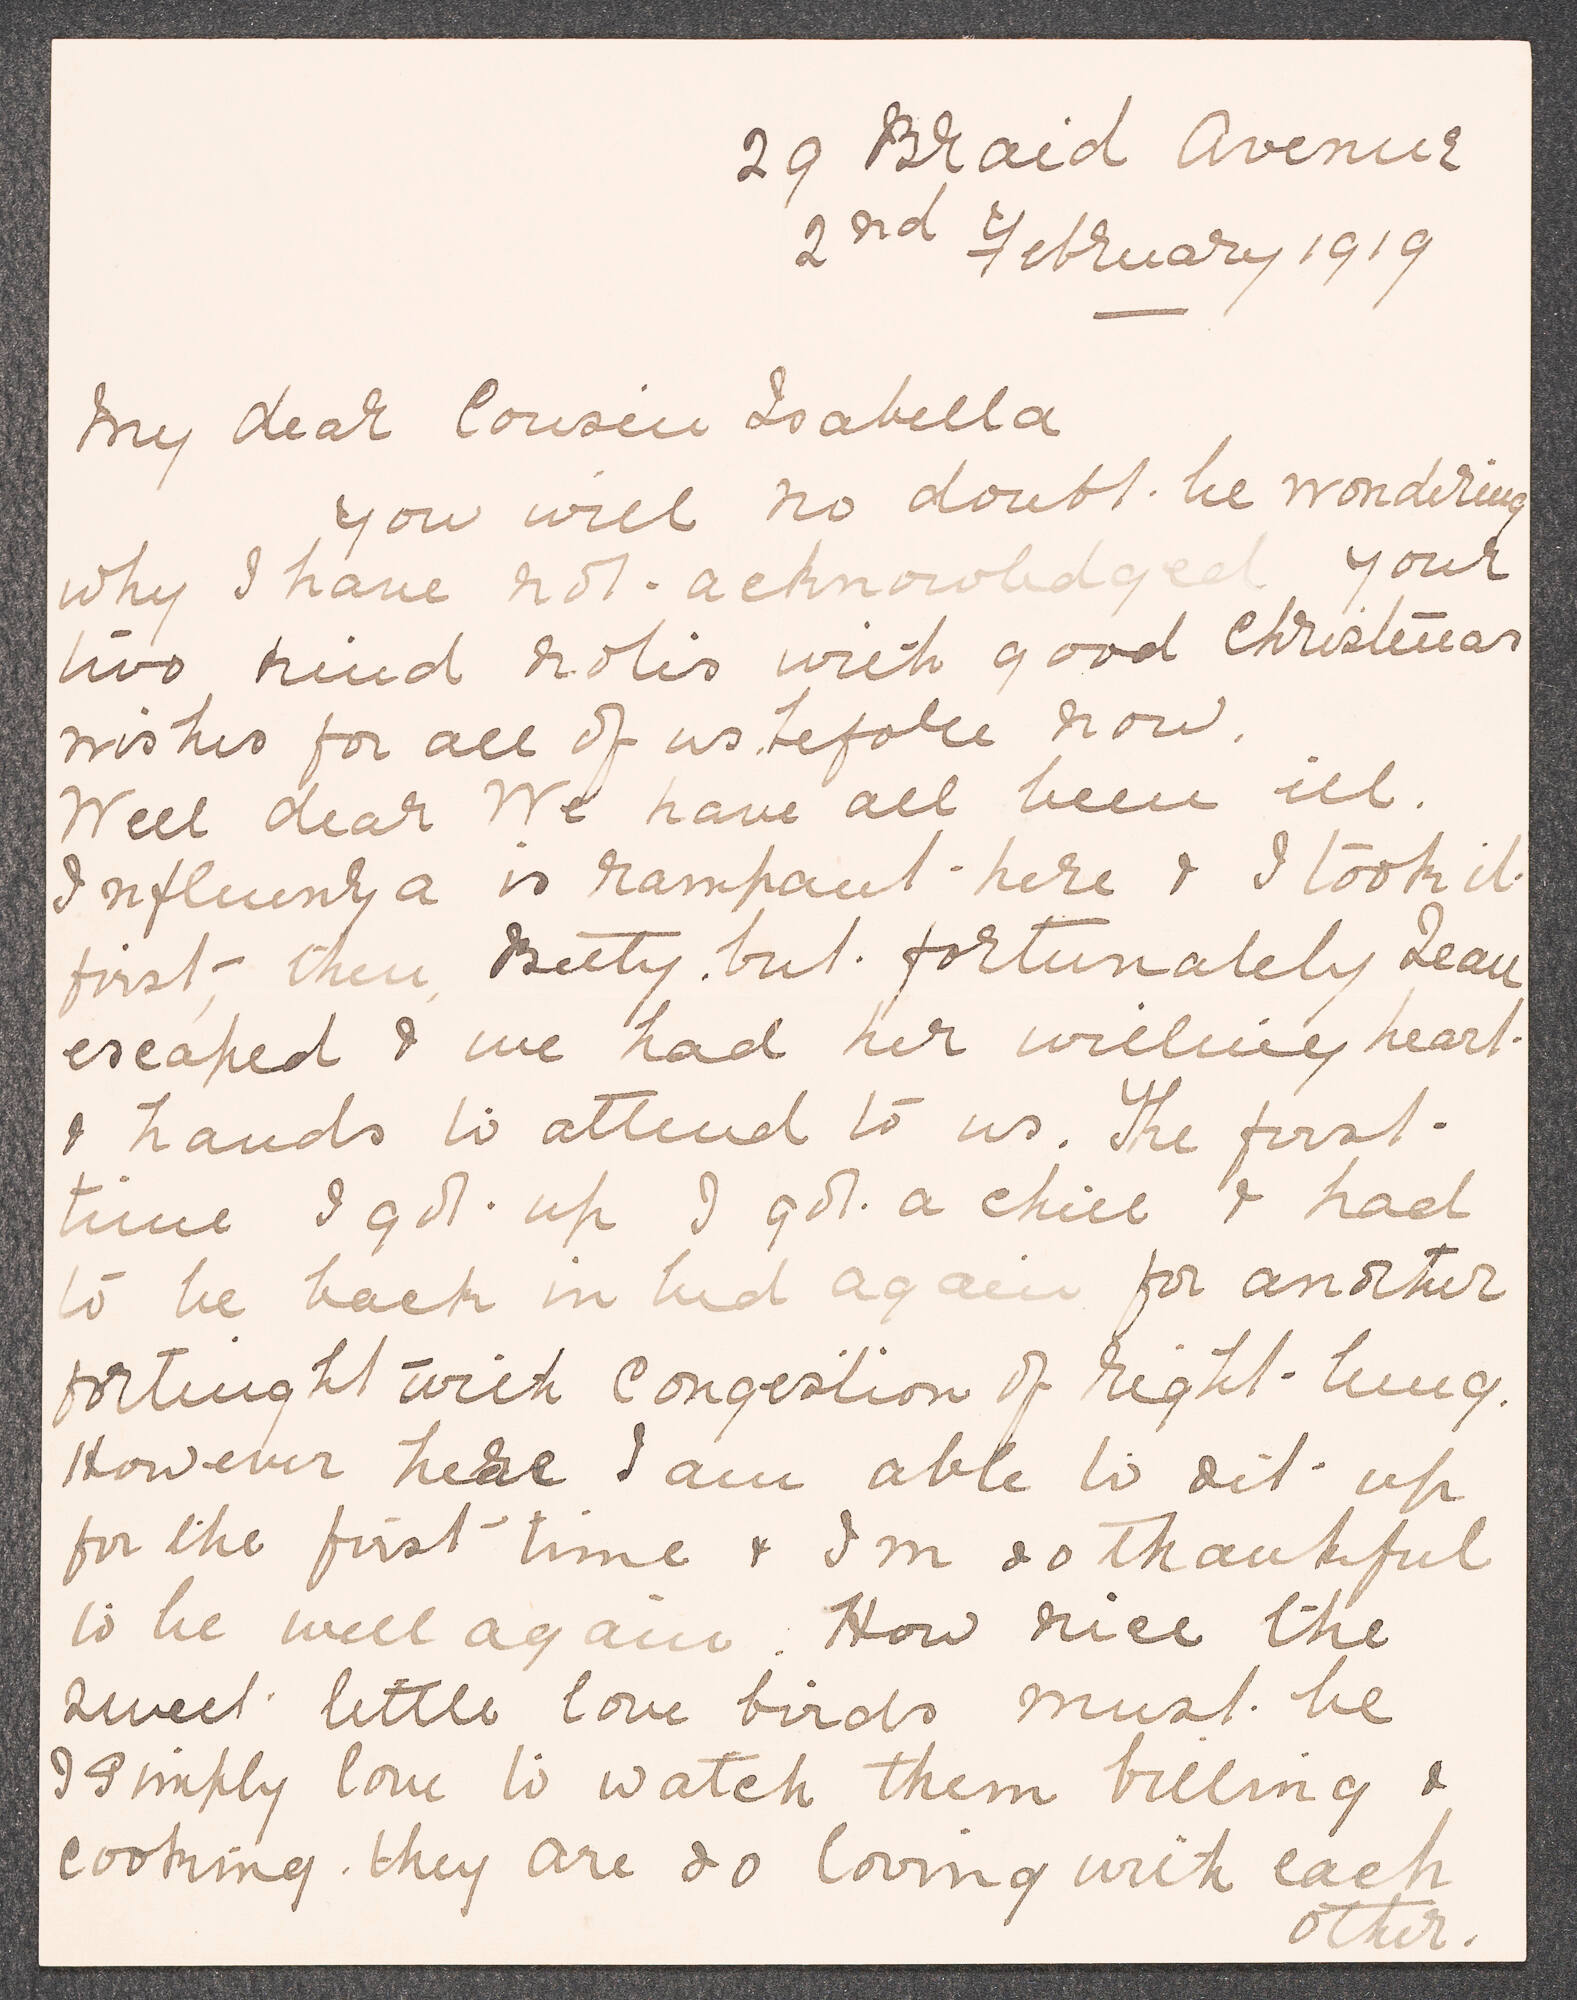 29 Braid Avenue
2nd February 1919
My dear Cousin Isabella
you will no doubt. be wondering
why I have not. acknowledged your
two kind notes with good Christmas
wishes for all of us. before now.
Well dear We have all been ill.
Influenza is rampant here & I took it.
first, then, Betty. but. fortunately Jean
escaped & we had her willing heart.
& hands to attend to us. The first.
time I got. up I got. a chill & had
to be back in bed again for another
fortnight with Congestion of right. lung.
However here I am able to sit. up
for the first time & I'm so thankful
to be well again. How nice the
sweet. little love birds must. be
I simply love to watch them billing &
cooking. they are so loving with each
other.